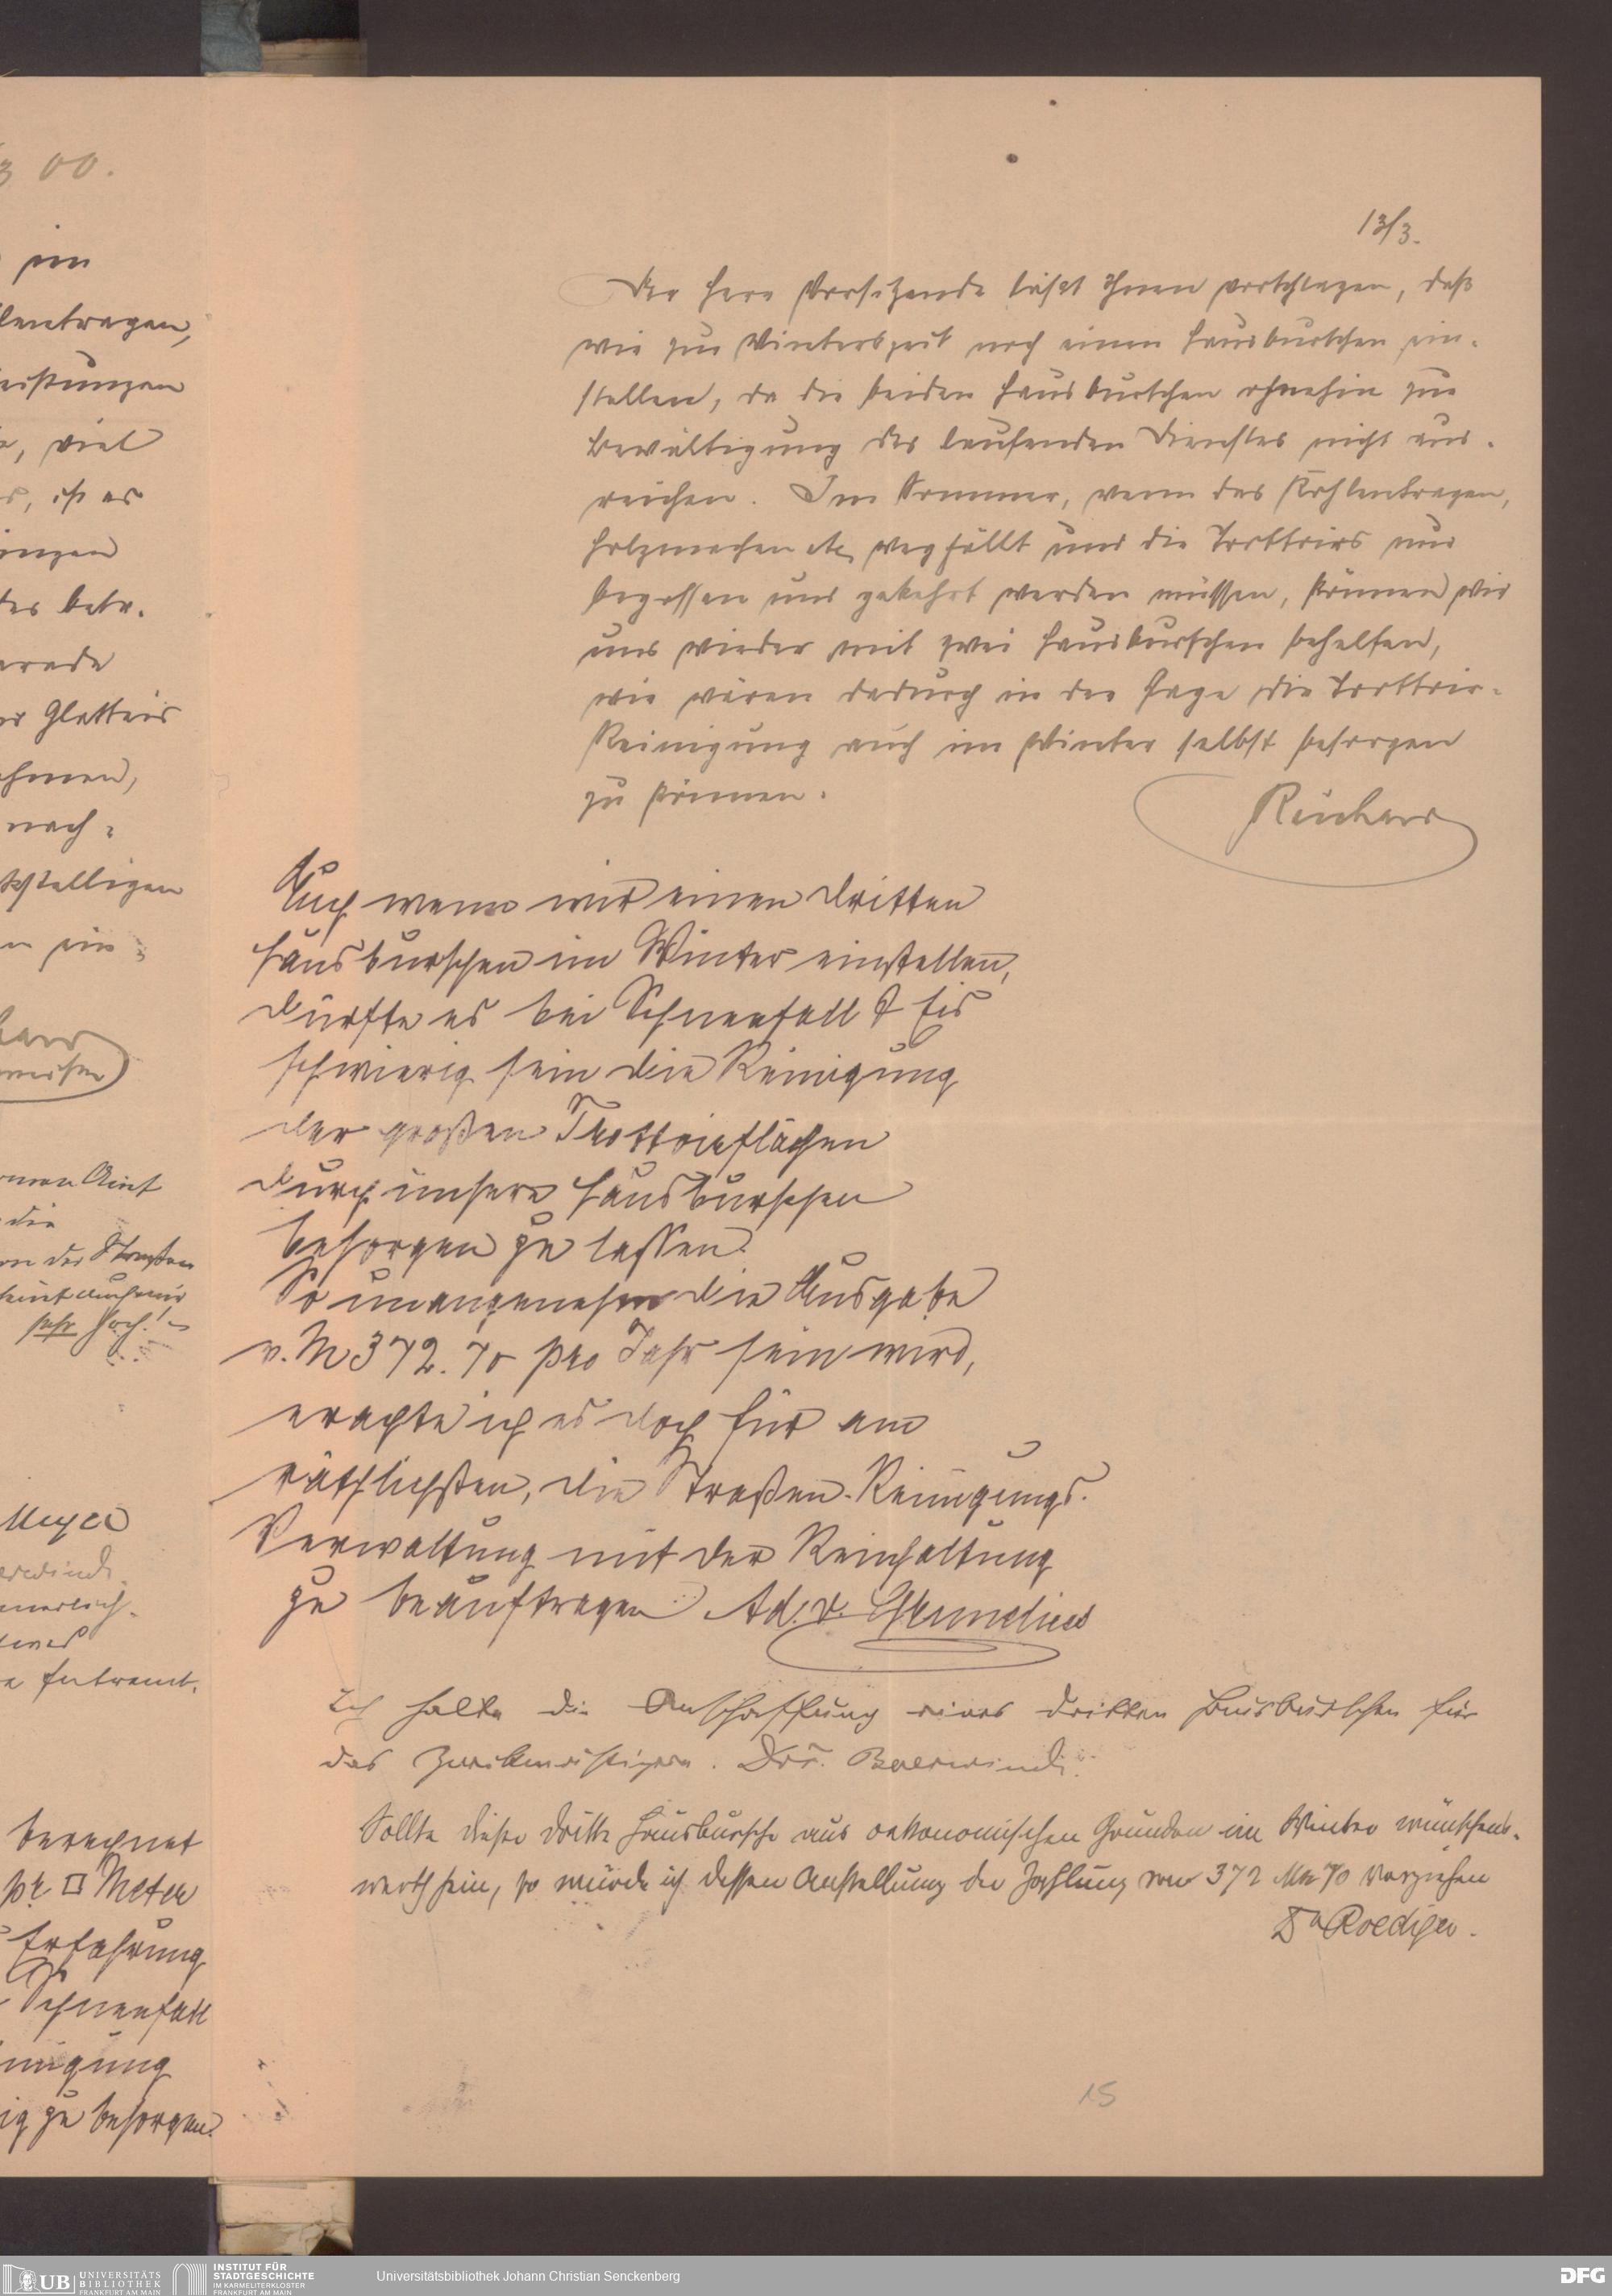 3 00.
im
lentragen,
leistungen
, viel
, ist es
ungen
des betr.
erade
Glatteis
ehmen,
nach-
stelligen
ein-
Amt
die
von der Straßen
scheint auch mir
sehr hoch!
Meyer
berechnet
pr. □ Meter
Erfahrung
Schneefall
nigung
ig zu besorgen.
13/3.
Der Herr Vorsitzende läßt Ihnen vorschlagen, daß
wir zur Winterszeit noch einen Hausburschen ein-
stellen, da die beiden Hausburschen ohnehin zur
Bewältigung des laufenden Dienstes nicht aus-
reichen. Im Sommer, wenn das Kohlentragen,
Holzmachen etc. wegfällt und die Trottoirs nur
begossen und gekehrt werden müssen, können wir
uns wieder mit zwei Hausburschen behelfen,
wir wären dadurch in der Lage die Trottoir-
Reinigung auch im Winter selbst besorgen
zu können.
Reichard
Auch wenn wir einen dritten
Hausburschen im Winter einstellen,
dürfte es bei Schneefall & Eis
schwierig sein die Reinigung
der großen Trottoirflächen
durch unsere Hausburschen
besorgen zu lassen.
So unangenehm die Ausgabe
v. M 372. 70 pro Jahr sein wird,
erachte ich es doch für am
räthlichsten, die Straßen-Reinigungs-
Verwaltung mit der Reinhaltung
zu beauftragen Ad. v. Grunelius
Ich halte die Anschaffung eines dritten Hausburschen für
das Zweckmäßigere. Dr. Baerwindt.
Sollte dieser dritte Hausbursche aus oekonomischen Gründen im Winter wünschens-
werth sein, so würde ich dessen Anstellung der Zahlung von 372 Mk 70 vorziehen
Dr Roediger.
15
UB UNIVERSITÄTS
BIBLIOTHEK
FRANKFURT AM MAIN
INSTITUT FÜR
STADTGESCHICHTE
IM KARMELITERKLOSTER
FRANKFURT AM MAIN
Universitätsbibliothek Johann Christian Senckenberg
DFG